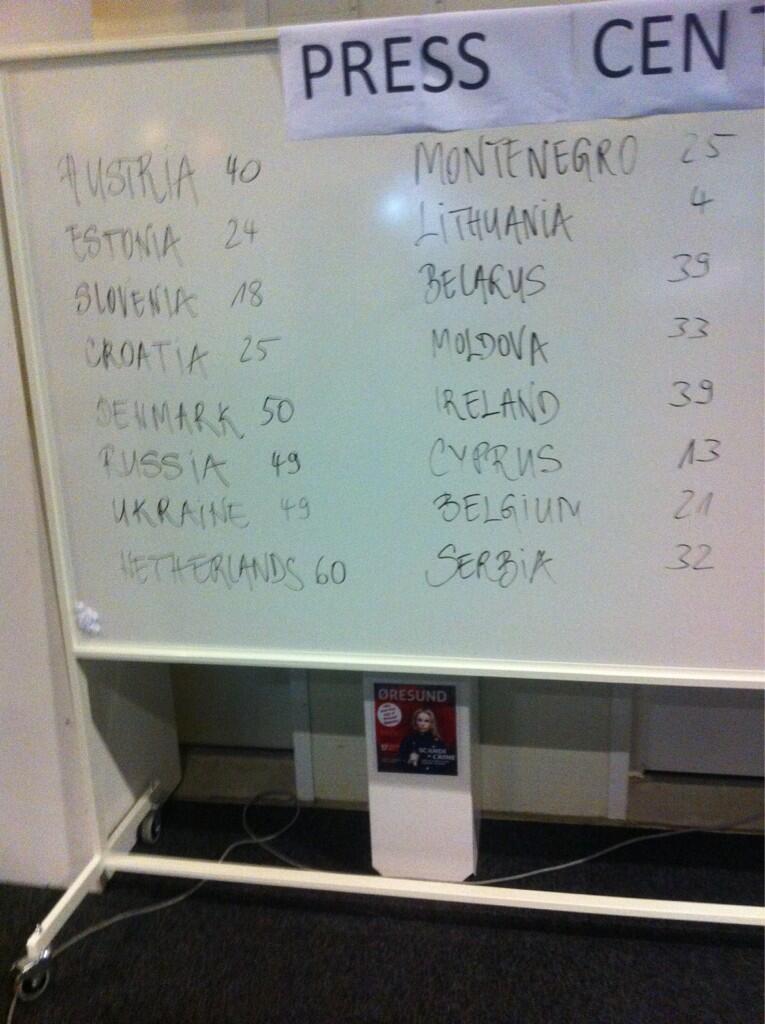 PRESS CENT
AUSTRIA 40
ESTONIA 24
SLOVENIA 18
CROATIA 25
DENMARK 50
RUSSIA 49
UKRAINE 49
NETHERLANDS 60
MONTENEGRO 25
LITHUANIA 4
BELARUS 39
MOLDOVA 33
IRELAND 39
CYPRUS 13
BELGIUM 21
SERBIA 32
ØRESUND
SCANDI
CRIME